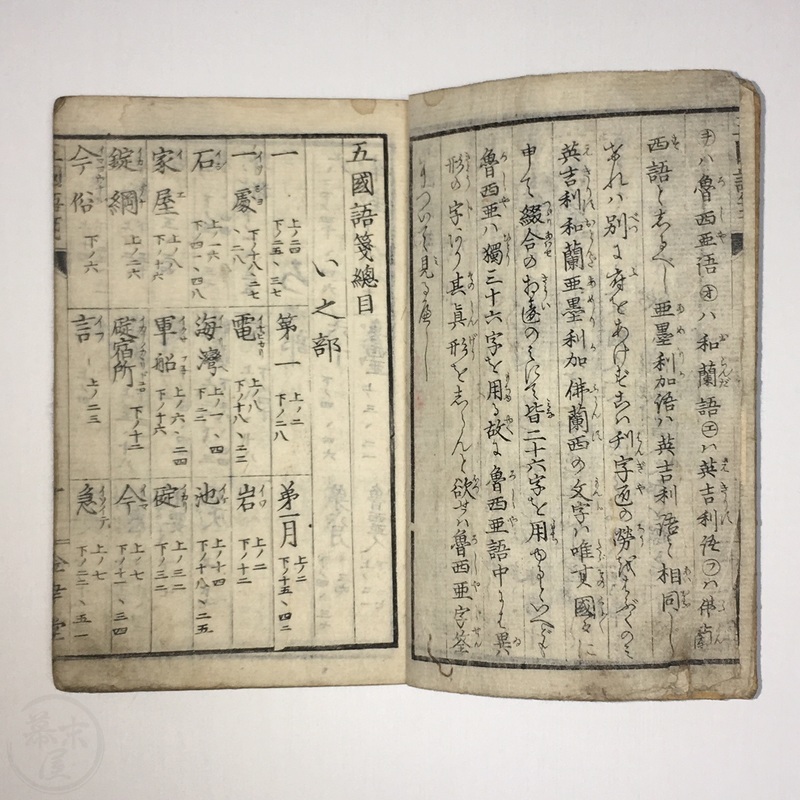 ハ魯西亜語㋔ハ和蘭語㋓ハ英吉利語㋫ハ佛蘭
西語としるべし亜墨利加語ハ英吉利語と相同し
なれハ別に をあけず ハ刋字 の労をはぶくのミ
英吉利和蘭亜墨利加佛蘭西の文字ハ唯其國々に
て綴合の のミにて皆二十六字を用ゆるといへども
魯西亜ハ獨三十六字を用る故に魯西亜語中に 異
形の字あり其真形をしらんと欲せハ魯西亜字筌
について見るべし
五國語箋總目
い之部
一 上ノ二〇 下ノ二五、三七
第一 上ノ二 下ノ二八
第一月 上ノ二 下ノ十五、四二
一處 下ノ十八、二七、二八
電 上ノ八 下ノ十八、二二
岩 上ノ二 下ノ十二
石 上ノ一六 下ノ四一、四八
海灣 上ノ一、四 下ノ二二
池 上ノ十四 下ノ十八、二五
家屋 上ノ八 下ノ十六
軍船 上ノ六、二四 下ノ十六
碇 上ノ二 下ノ三二
錠綱 上ノ二六
碇宿所 下ノ十二
今 上ノ七 下ノ十一、三四
今俗 下ノ六
言 上ノ二三
急 上ノ七 下ノ二二、五一
幕末屋